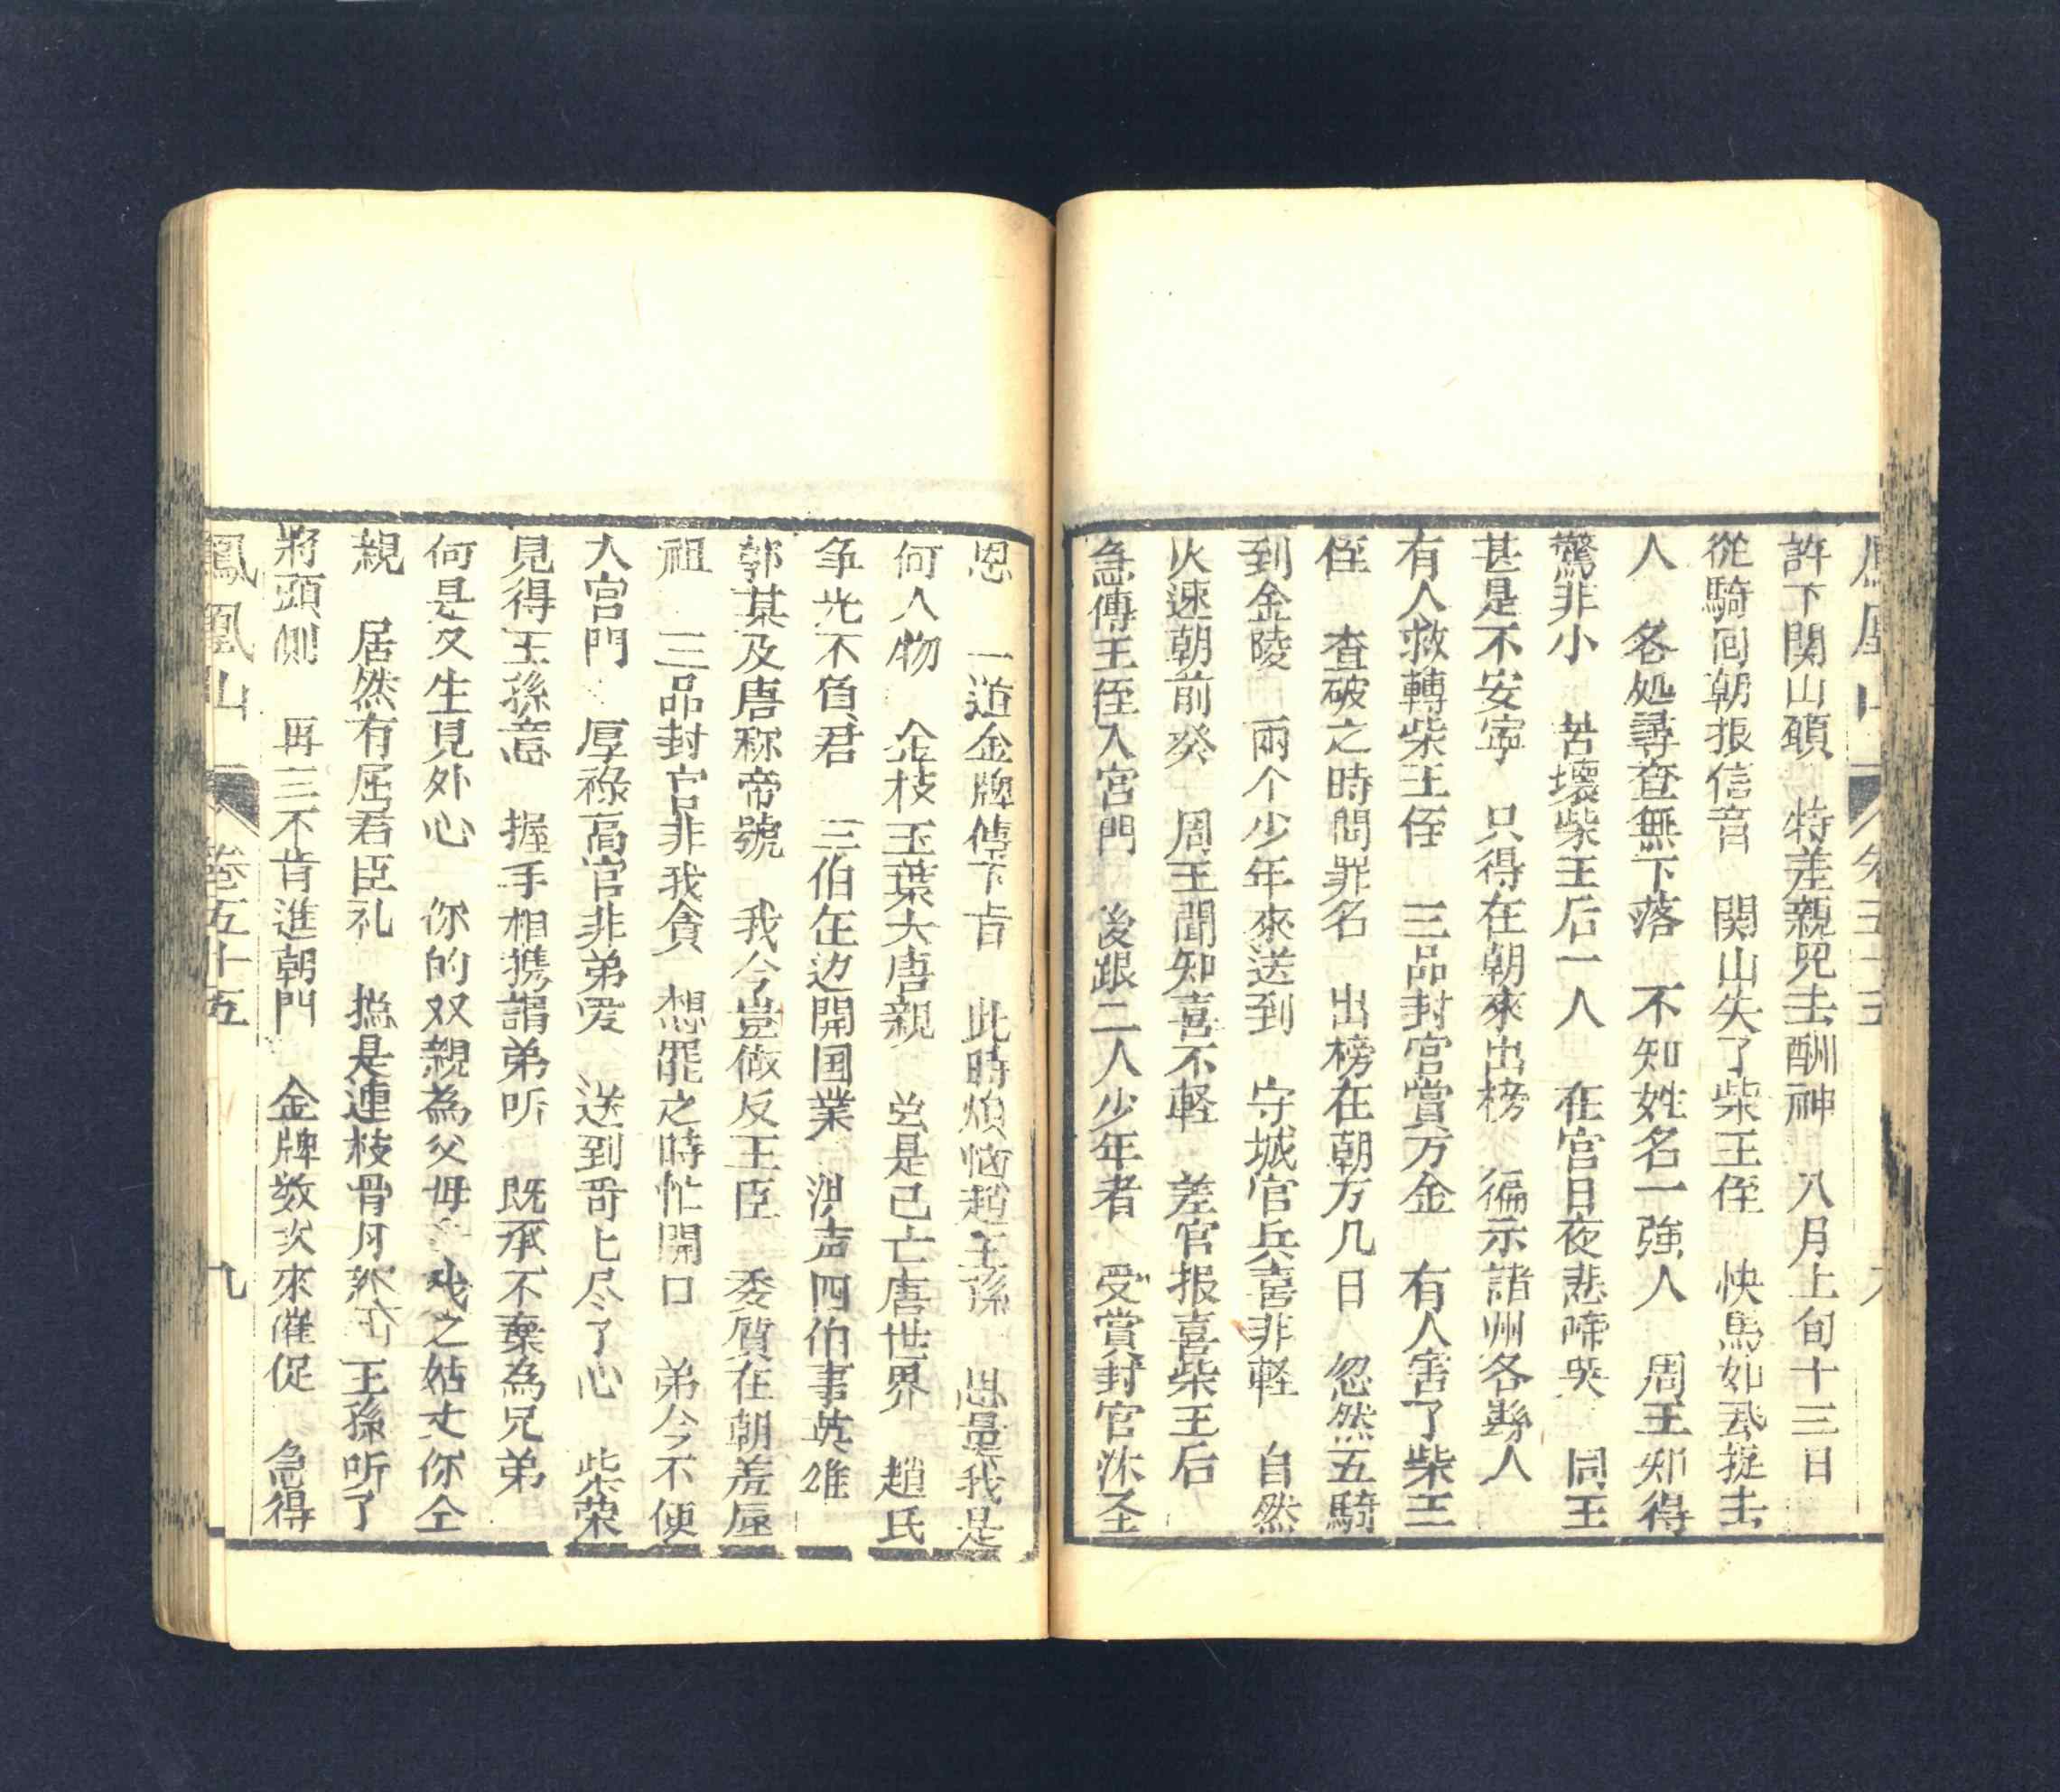 許下関山願　特差親兒去酬神　八月上旬十三日
從騎回朝报信音　関山失了柴王侄　快馬如云捉去
人　各処尋查無下落　不知姓名一強人　周王知得
驚非小　苦壞柴王后一人　在官日夜悲啼哭　同王
甚是不安寧　只得在朝來出榜　徧示諸州各縣人
有人救轉柴王侄　三品封官賞万金　有人害了柴王
侄　查破之時問罪名　出榜在朝方几日　忽然五騎
到金陵　兩个少年來送到　守城官兵喜非軽　自然
火速朝前癸　周王聞知喜不軽　差官报喜柴王后
急傳王侄入宮門　後跟二人少年者　受賞封官沐圣
恩　一道金牌傳下㫖　此時煩惱趙王孫　思量我是
何人物　金枝玉葉大唐親　㒷是已亡唐世界　趙氏
争光不負君　三伯在边開国業　洪声四伯事英雄
郭某及唐称帝號　我今豈做反王臣　委質在朝羞辱
祖　三品封官非我貪　想罷之時忙開口　弟今不便
入宮門　厚祿高官非弟爱　送到哥匕尽了心　柴荣
見得王孫意　握手相携謂弟听　既承不棄為兄弟
何是又生見外心　你的双親為父母　我之姑丈你仝
親　居然有屈君臣礼　揔是連枝骨月　王孫听了
將頭側　再三不肯進朝門　金牌数次來催促　急得
鳳凰山　卷五十五　九